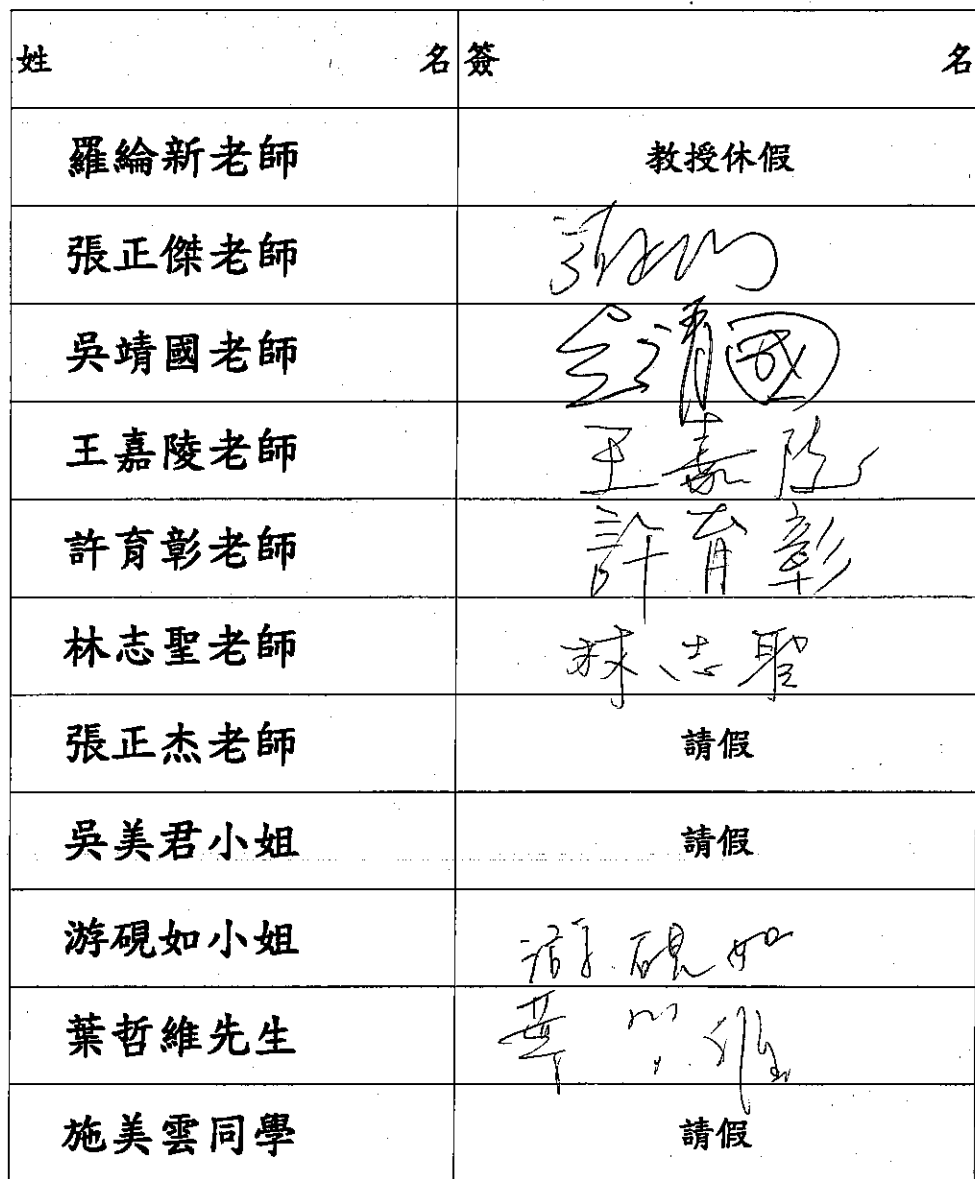 姓名 簽名
羅綸新老師 教授休假
張正傑老師
吳靖國老師 吳靖國
王嘉陵老師 王嘉陵
許育彰老師 許育彰
林志聖老師 林志聖
張正杰老師 請假
吳美君小姐 請假
游硯如小姐 游硯如
葉哲維先生
施美雲同學 請假